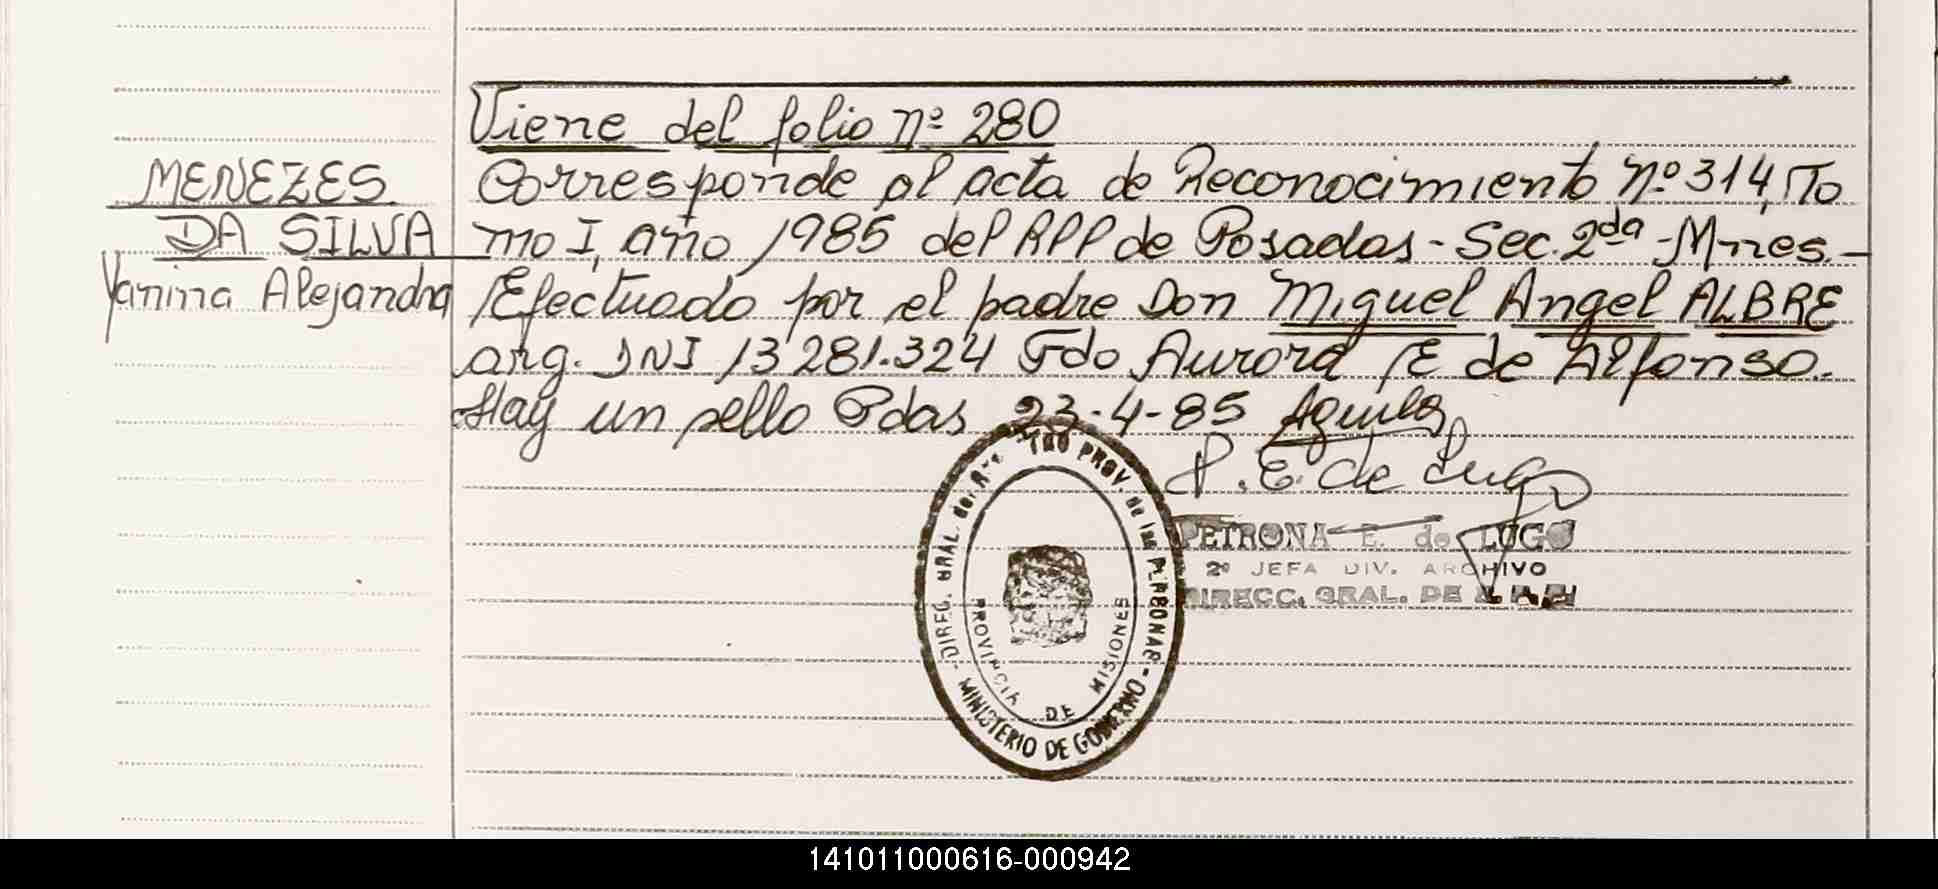 Viene del folio nº 280
MENEZES
DA SILVA
Yanina Alejandra
Corresponde al acta de Reconocimiento nº 314, To
mo I, año 1985 del RPP de Posadas - Sec. 2da - Mnes. -
Efectuado por el padre Don Miguel Angel ALBRE
arg. DNI 13 281.324 Fdo Aurora E de Alfonso.
Hay un sello Pdas 23-4-85
P. E. de Lugo
PETRONA E. de LUGO
2º JEFA DIV. ARCHIVO
DIRECC. GRAL. DE
DIREC. GRAL. del PROV. de las PERSONAS
- MINISTERIO DE GOBIERNO -
PROVINCIA DE MISIONES
141011000616-000942